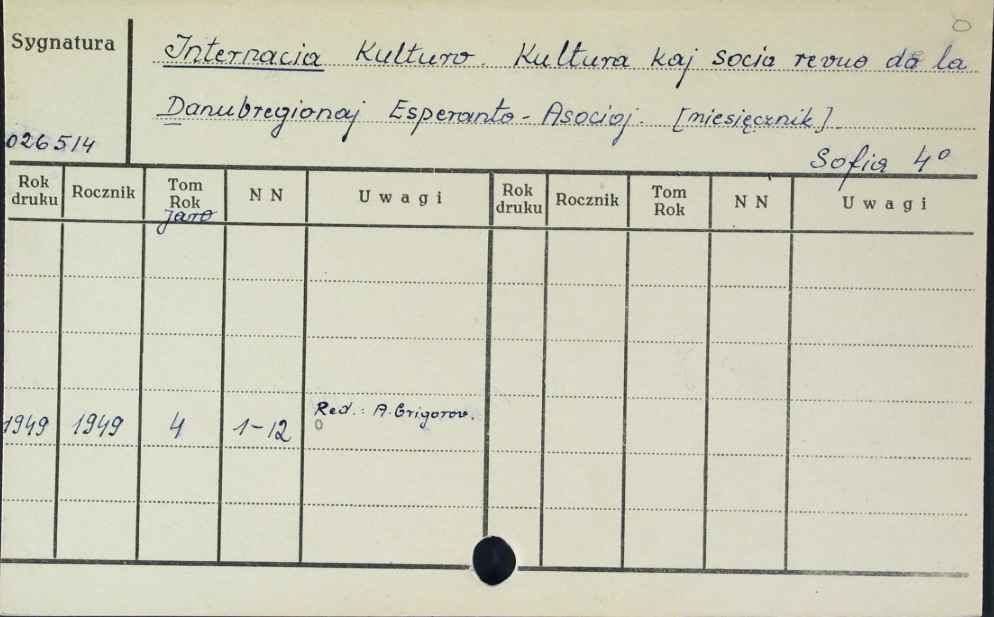 0
Sygnatura
Internacia Kulturo. Kultura kaj socia revuo de la
Danubregionaj Esperanto-Asocioj. [miesięcznik]
026514
Sofia 4°
Rok druku Rocznik Tom Rok N N Uwagi Rok druku Rocznik Tom Rok N N Uwagi
jaro
1949 1949 4 1-12 Red.: A. Grigorov.
0